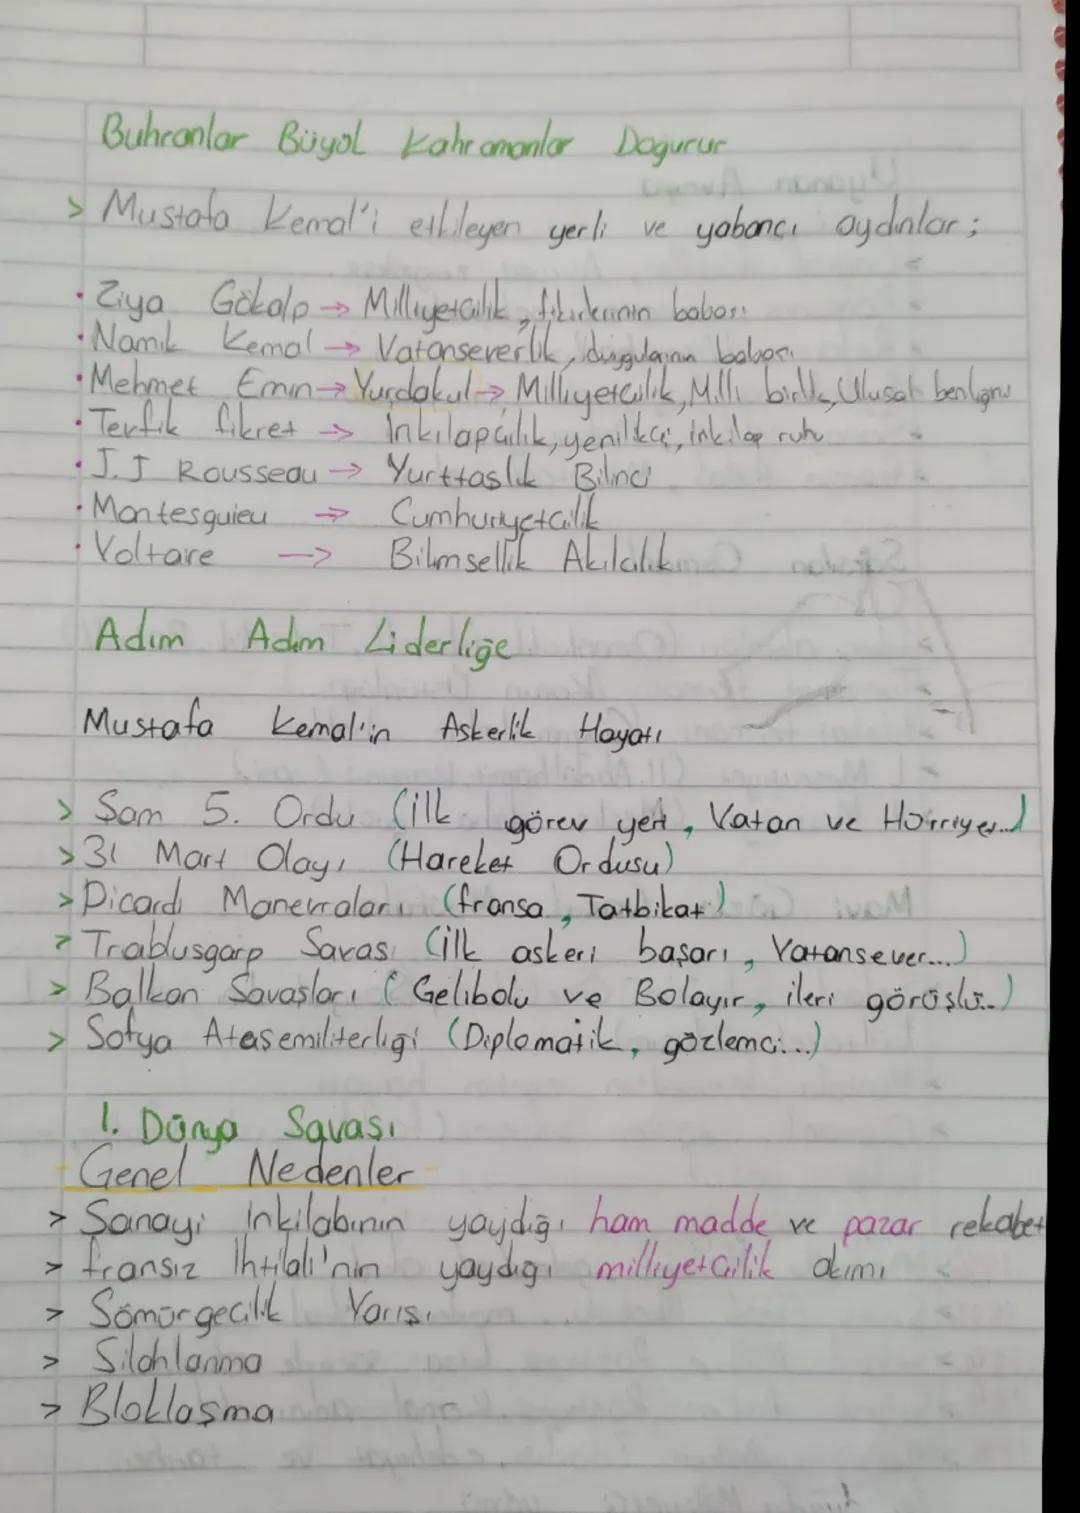 Buhranlar Büyük Kahramanlar Dogurur
> Mustafa Kemal'i etkileyen yerli ve yabancı aydınlar;
• Ziya Gökalp → Milliyetcilik, fikirlerinin babası
• Namık Kemal → Vatanseverlik, duygularının babası
• Mehmet Emin → Yurdakul → Milliyetcilik, Milli birlik, Ulusal benliğini
• Tevfik fikret → İnkılapcılık, yenilikci, inkilap ruhu
• J.J Rousseau → Yurttaslık Bilinci
• Montesguieu → Cumhuriyetcilik
• Voltaire → Bilimsellik Akılcılık
Adım Adım Liderliğe
Mustafa Kemal'in Askerlik Hayatı
> Sam 5. Ordu (ilk görev yeri, Vatan ve Hürriyet...)
> 31 Mart Olayı (Hareket Ordusu)
> Picardi Manevraları (fransa, Tatbikat)
> Trablusgarp Savası (ilk askeri başarı, Vatansever...)
> Balkan Savaşları (Gelibolu ve Bolayır, ileri görüşlü..)
> Sofya Ataşemiliterligi (Diplomatik, gözlemci...)
1. Dünya Savaşı
Genel Nedenler
> Sanayi inkilabının yaydığı ham madde ve pazar rekabet
> fransız İhtilali'nin yaydıgı milliyetcilik akımı
> Sömürgecilik Yarışı
> Silahlanma
> Bloklaşma